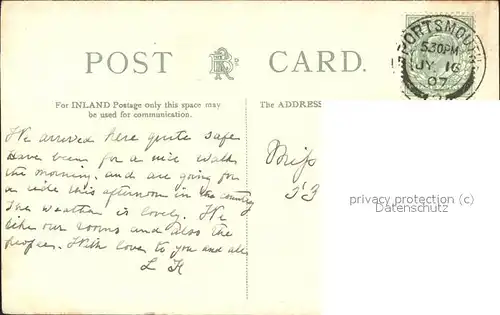 POST CARD.
PORTSMOUTH
5.30PM
JY 16
07
For INLAND Postage only this space may
be used for communication.
The ADDRESS
We arrived here quite safe
Have been for a nice walk
the morning. and are going for
a ride this afternoon in the country
The weather is lovely. We
like our rooms and also the
people. With love to you and all.
L H
Miss
privacy protection
Datenschutz